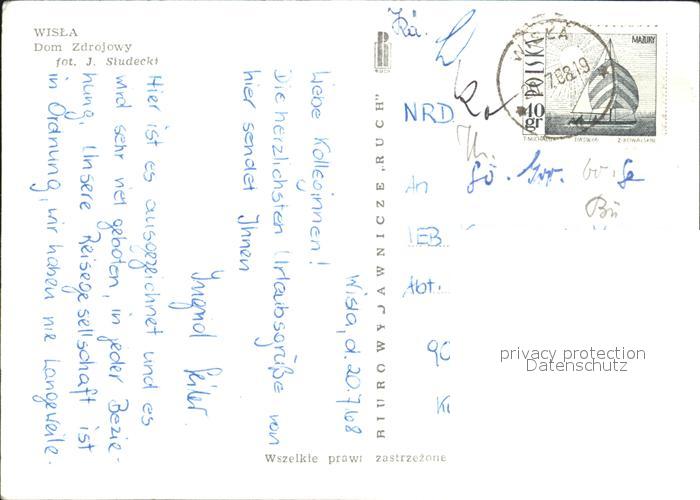 WISŁA
Dom Zdrojowy
fot. J. Siudecki
Wisla, d. 20.7.68
Liebe Kolleginnen!
Die herzlichsten Urlaubsgrüße von
hier sendet Ihnen
Ingrid
Hier ist es ausgezeichnet und es
wird sehr viel geboten, in jeder Bezie-
hung. Unsere Reisegesellschaft ist
in Ordnung, wir haben nie Langeweile.
BIURO WYDAWNICZE „RUCH"
Wszelkie prawa zastrzeżone
WISŁA
POLSKA
40 gr
MAZURY
NRD
An
IEB
Abt.
privacy protection
Datenschutz